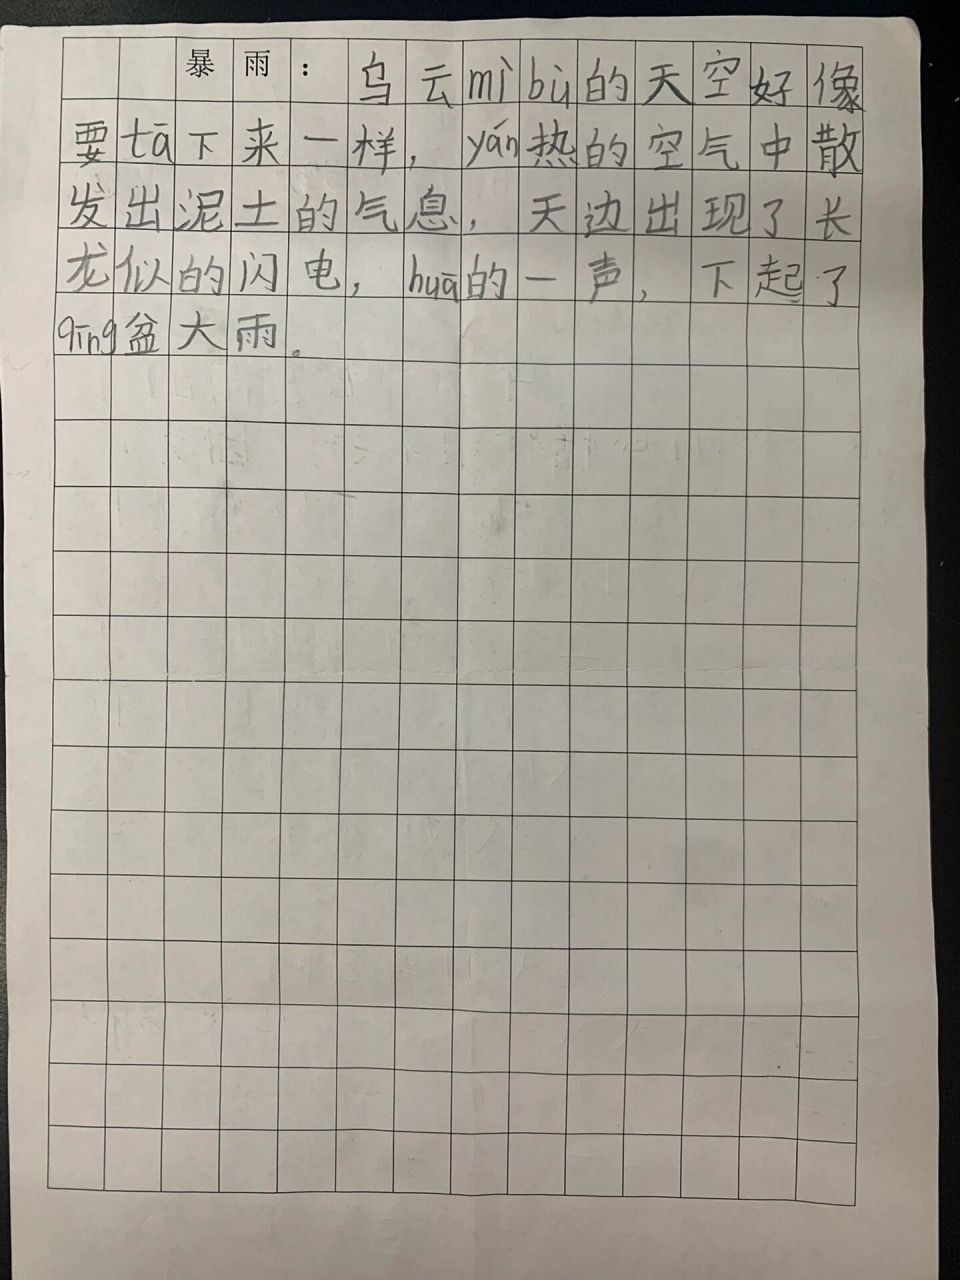 暴雨：乌云mìbù的天空好像
要tā下来一样，yán热的空气中散
发出泥土的气息，天边出现了长
龙似的闪电，huā的一声，下起了
qīng盆大雨。